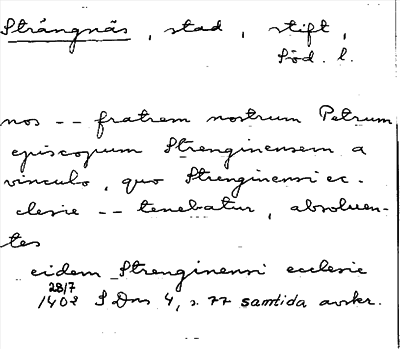 Strängnäs, stad, stift,
Söd. l.
nos -- fratrem nostrum Petrum
episcopum Strenginensem a
vinculo, quo Strenginensi ec-
clesie -- tenebatur, absoluen-
tes
eidem Strenginensi ecclesie
28/7
1402 SDns 4, s. 77 samtida avskr.